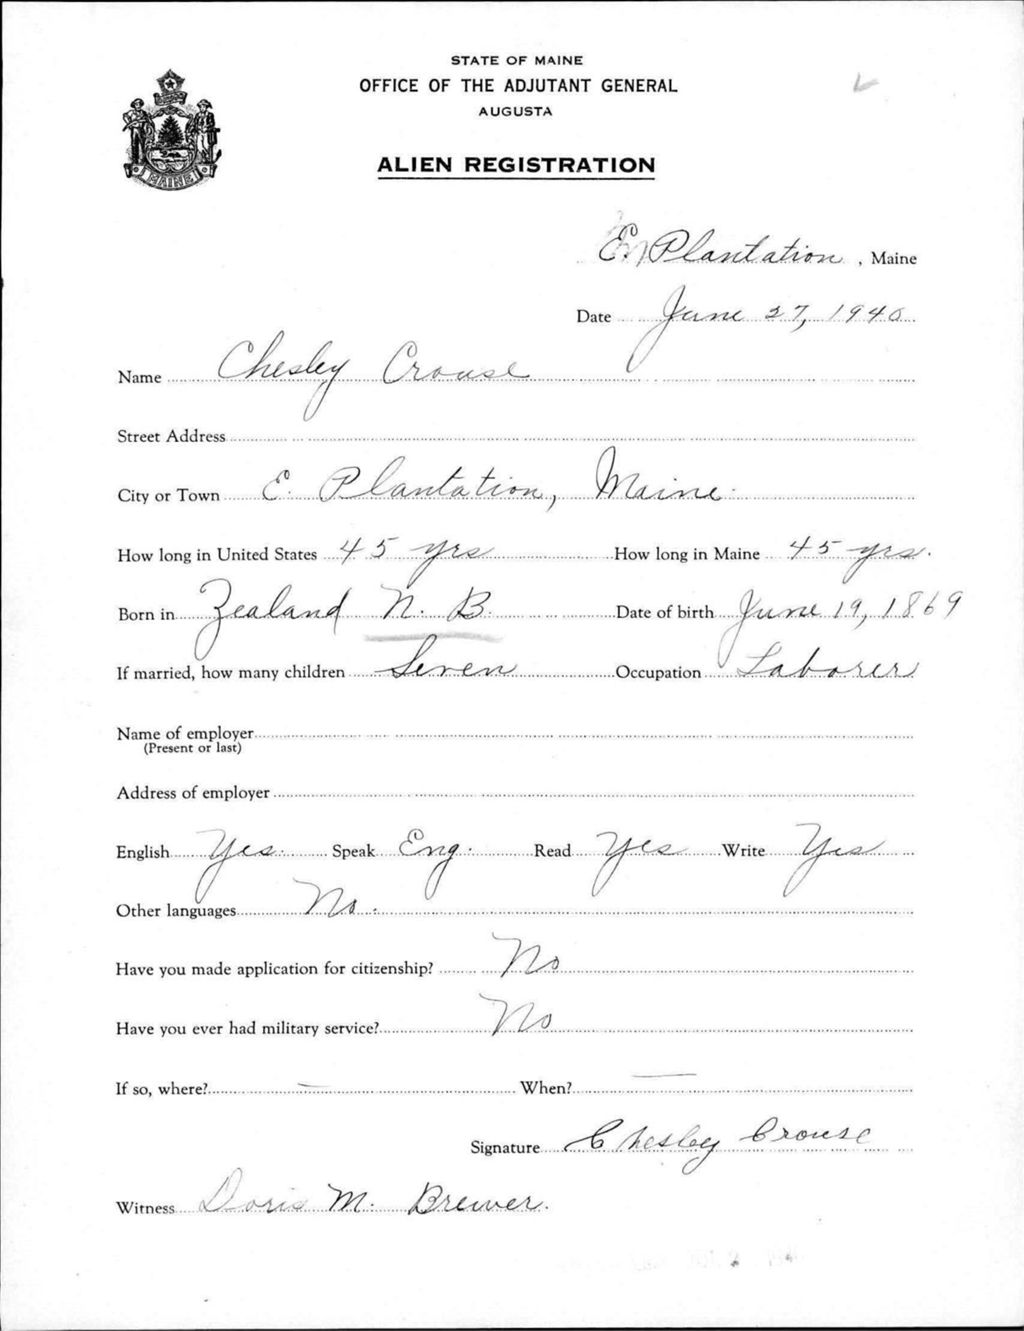 STATE OF MAINE
OFFICE OF THE ADJUTANT GENERAL
AUGUSTA
ALIEN REGISTRATION
MAINE
E. Plantation, Maine
Date June 27, 1940
Name Chesley Crouse
Street Address
City or Town E. Plantation, Maine.
How long in United States 45 yrs How long in Maine 45 yrs.
Born in Zealand N. B. Date of birth June 19, 1869
If married, how many children Seven Occupation Laborer
Name of employer
(Present or last)
Address of employer
English Yes. Speak Eng. Read Yes Write Yes
Other languages No.
Have you made application for citizenship? No
Have you ever had military service? No
If so, where? — When? —
Signature Chesley Crouse
Witness Doris M. Brewer.